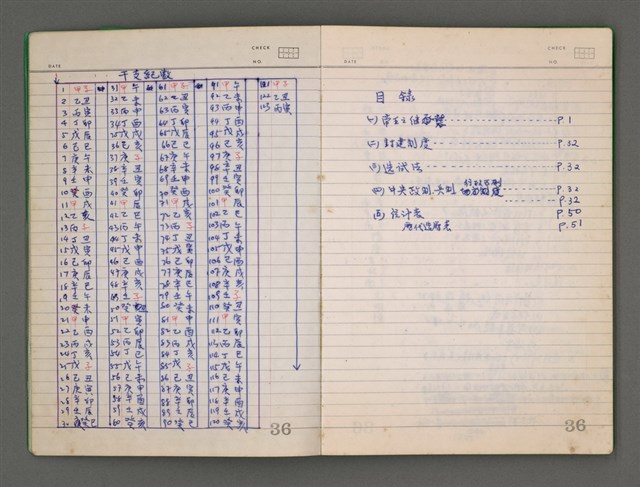 CHECK
DATE
NO.
干支紀數
1 甲子 31 甲午 61 甲子 91 甲午 121 甲子
2 乙丑 32 乙未 62 乙丑 92 乙未 122 乙丑
3 丙寅 33 丙申 63 丙寅 93 丙申 123 丙寅
4 丁卯 34 丁酉 64 丁卯 94 丁酉
5 戊辰 35 戊戌 65 戊辰 95 戊戌
6 己巳 36 己亥 66 己巳 96 己亥
7 庚午 37 庚子 67 庚午 97 庚子
8 辛未 38 辛丑 68 辛未 98 辛丑
9 壬申 39 壬寅 69 壬申 99 壬寅
10 癸酉 40 癸卯 70 癸酉 100 癸卯
11 甲戌 41 甲辰 71 甲戌 101 甲辰
12 乙亥 42 乙巳 72 乙亥 102 乙巳
13 丙子 43 丙午 73 丙子 103 丙午
14 丁丑 44 丁未 74 丁丑 104 丁未
15 戊寅 45 戊申 75 戊寅 105 戊申
16 己卯 46 己酉 76 己卯 106 己酉
17 庚辰 47 庚戌 77 庚辰 107 庚戌
18 辛巳 48 辛亥 78 辛巳 108 辛亥
19 壬午 49 壬子 79 壬午 109 壬子
20 癸未 50 癸丑 80 癸未 110 癸丑
21 甲申 51 甲寅 81 甲申 111 甲寅
22 乙酉 52 乙卯 82 乙酉 112 乙卯
23 丙戌 53 丙辰 83 丙戌 113 丙辰
24 丁亥 54 丁巳 84 丁亥 114 丁巳
25 戊子 55 戊午 85 戊子 115 戊午
26 己丑 56 己未 86 己丑 116 己未
27 庚寅 57 庚申 87 庚寅 117 庚申
28 辛卯 58 辛酉 88 辛卯 118 辛酉
29 壬辰 59 壬戌 89 壬辰 119 壬戌
30 癸巳 60 癸亥 90 癸巳 120 癸亥
36
CHECK
DATE
NO.
目錄
(一)帝王 P.1
(二)封建制度 P.32
(三)選試法 P.32
(四)中央政制.兵制 P.32
P.32
統計表 P.50
歷代 P.51
36